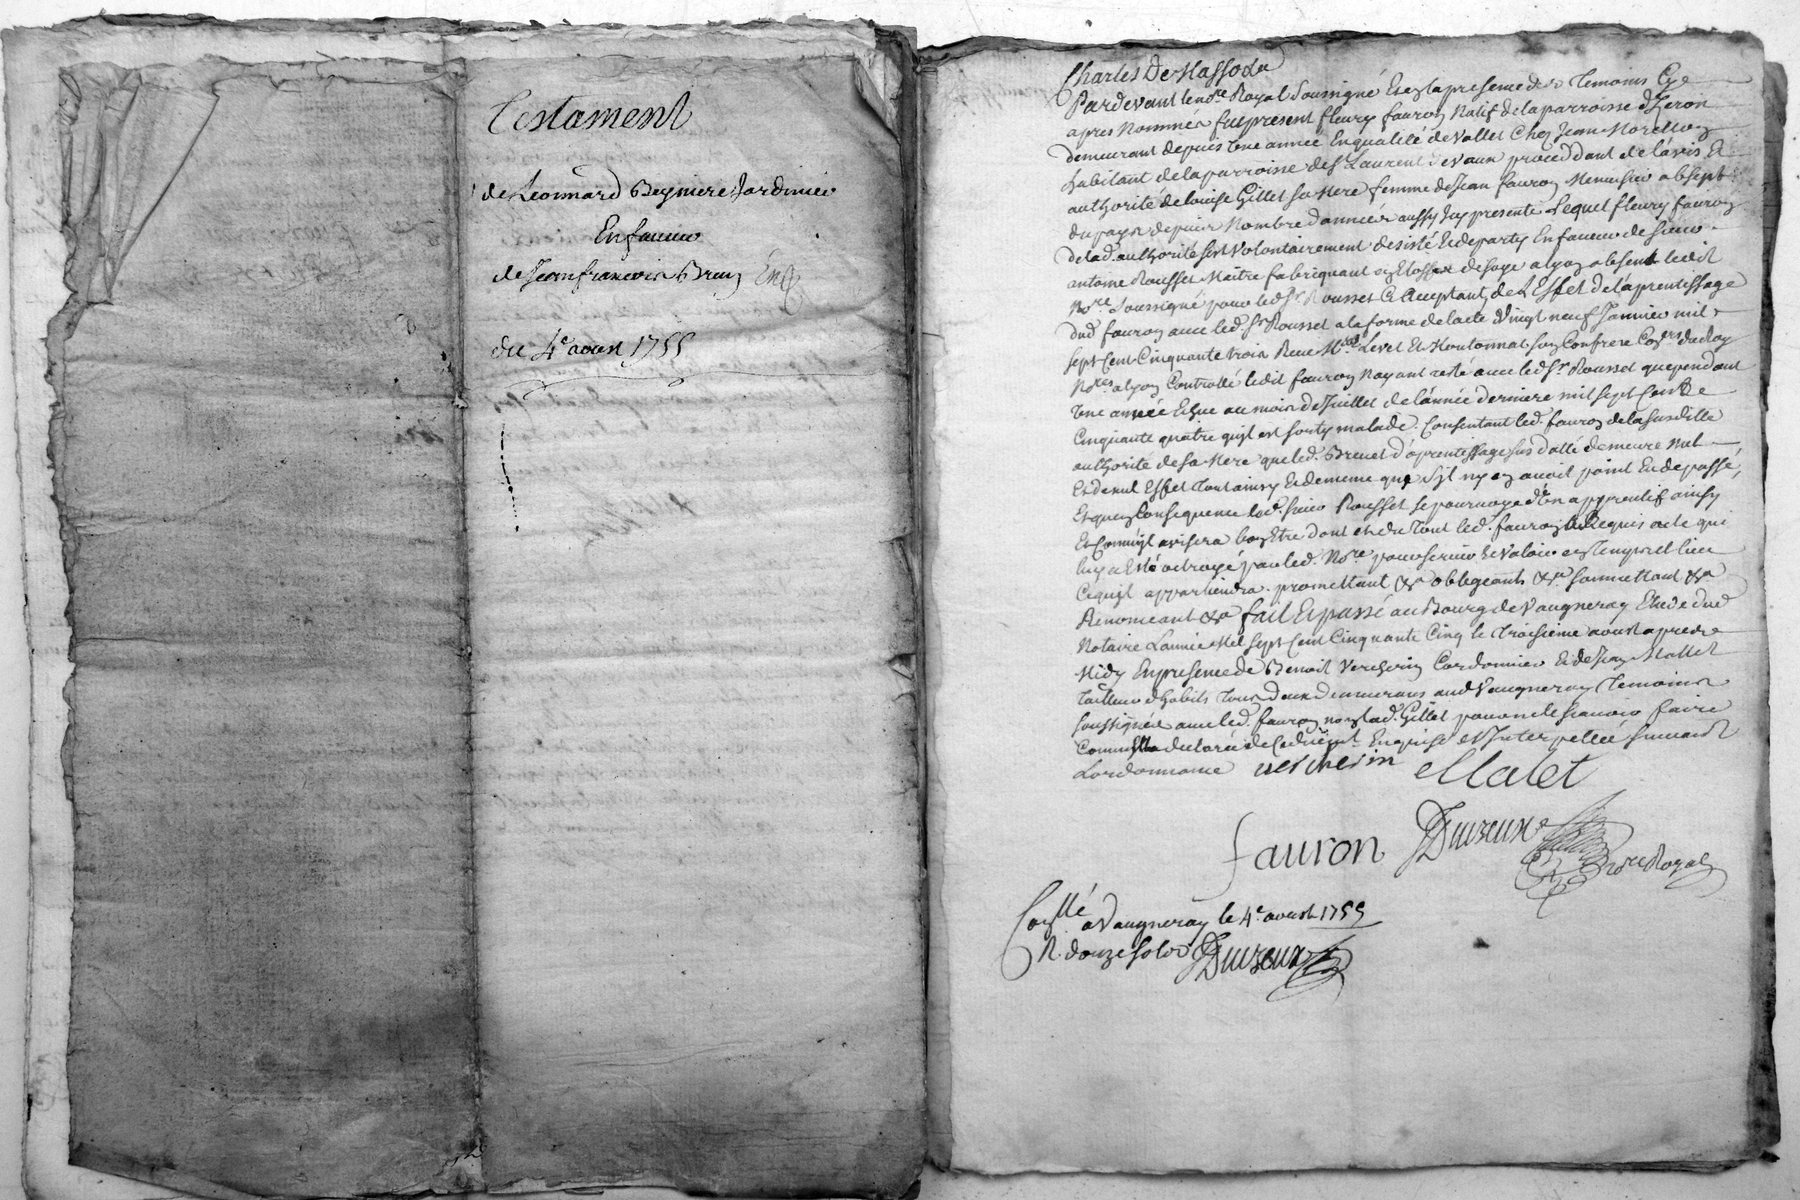 Testament
de Leonnard Beyniere Jardinier
En faueur
de Jean francois Brun
du 4e. aoust 1755
Charles De Masso &a
Pardevant le no.re Royal Soussigné Et en la presence des Temoins Cy
apres Nommés fut present fleury fauron Natif de la parroisse d'
demeurant depuis Une année En qualité de Vallet Chez Jean
habitant de la parroisse de St. Laurent de Vaux procedant de l'avis Et
authorité de Louise Gillet sa Mere femme de Jean fauron Menusier absent
du pays depuis Nombre d'années aussy Icy presente Lequel fleury fauron
de lad. authorité s'est Volontairement desisté Et departy En faueur de sieur
antoine Rousset Maitre fabriquant en Etoffes de soye a Lyon absent ledit
No.re Soussigné pour led. Sr. Rousset acceptant de L'Effet de l'aprentissage
dud. fauron auec led. Sr. Rousset a la forme de l'acte du Vingt neuf Januier mil
sept Cent Cinquante trois Receu Levet Et son Confrere Con.ers du Roy
No.res a Lyon Controllé ledit fauron N'ayant resté auec led. Sr. Rousset que pendant
Une année Et que au mois de Juillet de l'année derniere mil sept Cent
Cinquante quatre qu'il est sorty malade. Consentant led. fauron de la susditte
authorité de sa Mere que led. Breuet d'aprentissage sus datté demeure Nul
Et de nul Effet Tout ainsy Et de meme que s'il n'y en auoit point Eu de passé,
Et qu'en Consequence led. sieur Rousset se pouruoye d'Un apprentif ainsy
Et Comm'il auisera bon Etre dont et du Tout led. fauron a Requis acte qui
luy a Eté octroyé par led. No.re pour seruir Et Valoir en Temps et lieu
Ce qu'il appartiendra. promettant &a obligeant &a soumettant &a
Renonceant &a fait Et passé au Bourg de Vaugneray Etude dud.
Notaire L'année Mil sept Cent Cinquante Cinq le Troisieme aoust apres
Midy En presence de Benoit Vercherin Cordonnier Et de Jean Mallet
Tailleur d'habits Tous deux demeurans aud. Vaugneray Temoins
soussignés auec led. fauron non lad. Gillet pour ne le scauoir faire
Comm'Elle a declaré de Ce Enquise Et Interpellée suiuant
L'ordonnance vercherin Malet
fauron
No.re Royal
Con.llé a Vaugneray le 4e. aoust 1755
R. douze sols